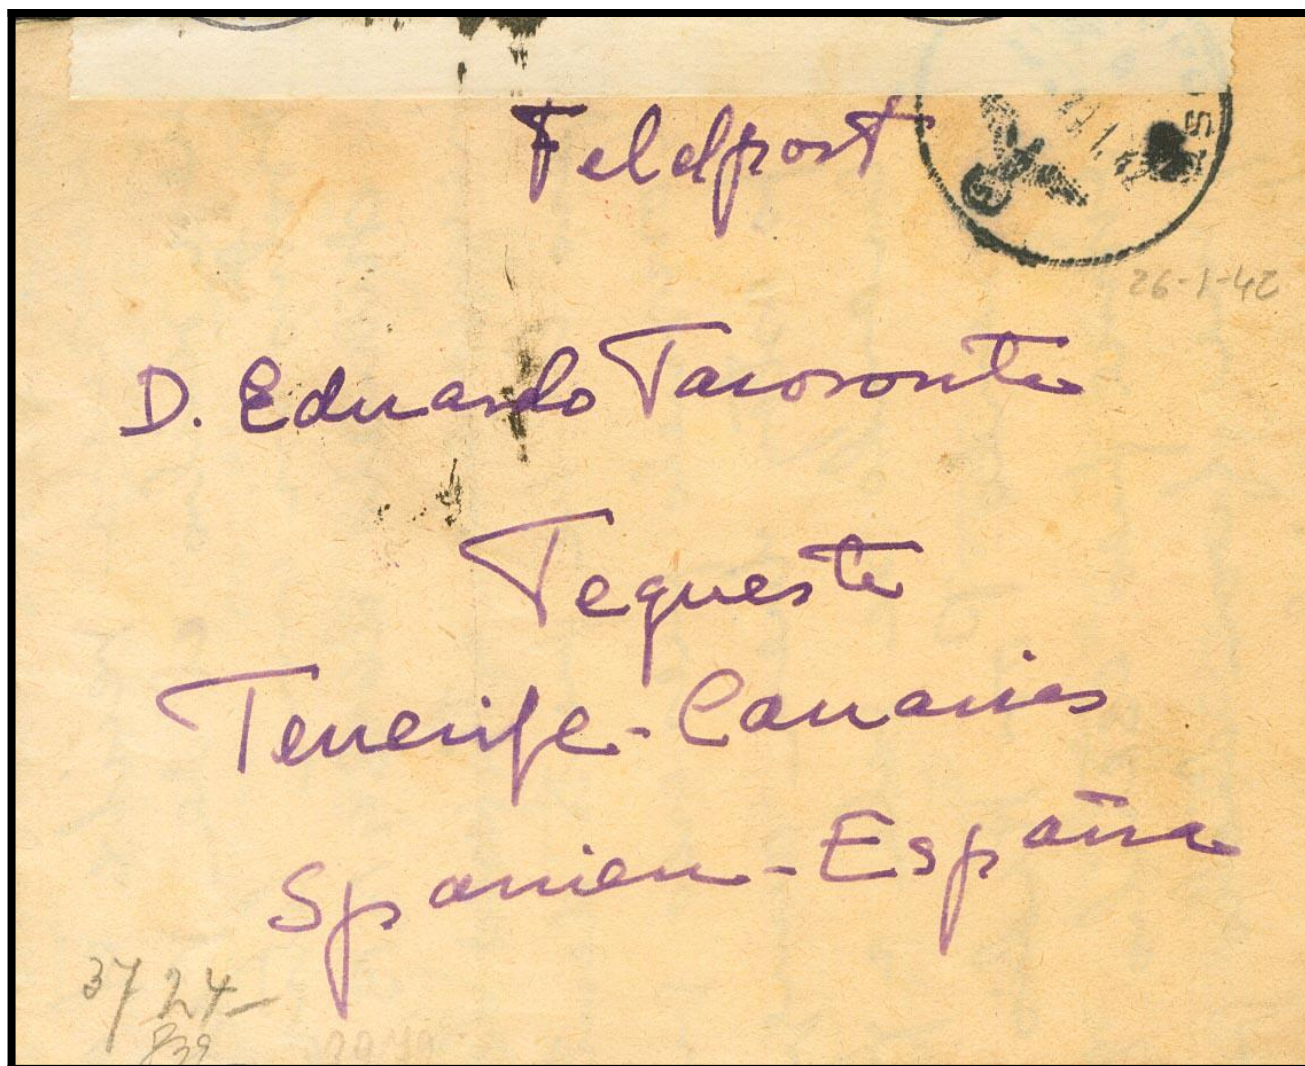 Feldpost
26-1-42
D. Eduardo Taroronte
Tegueste
Tenerife-Canarias
Spanien-España
37 24-
839